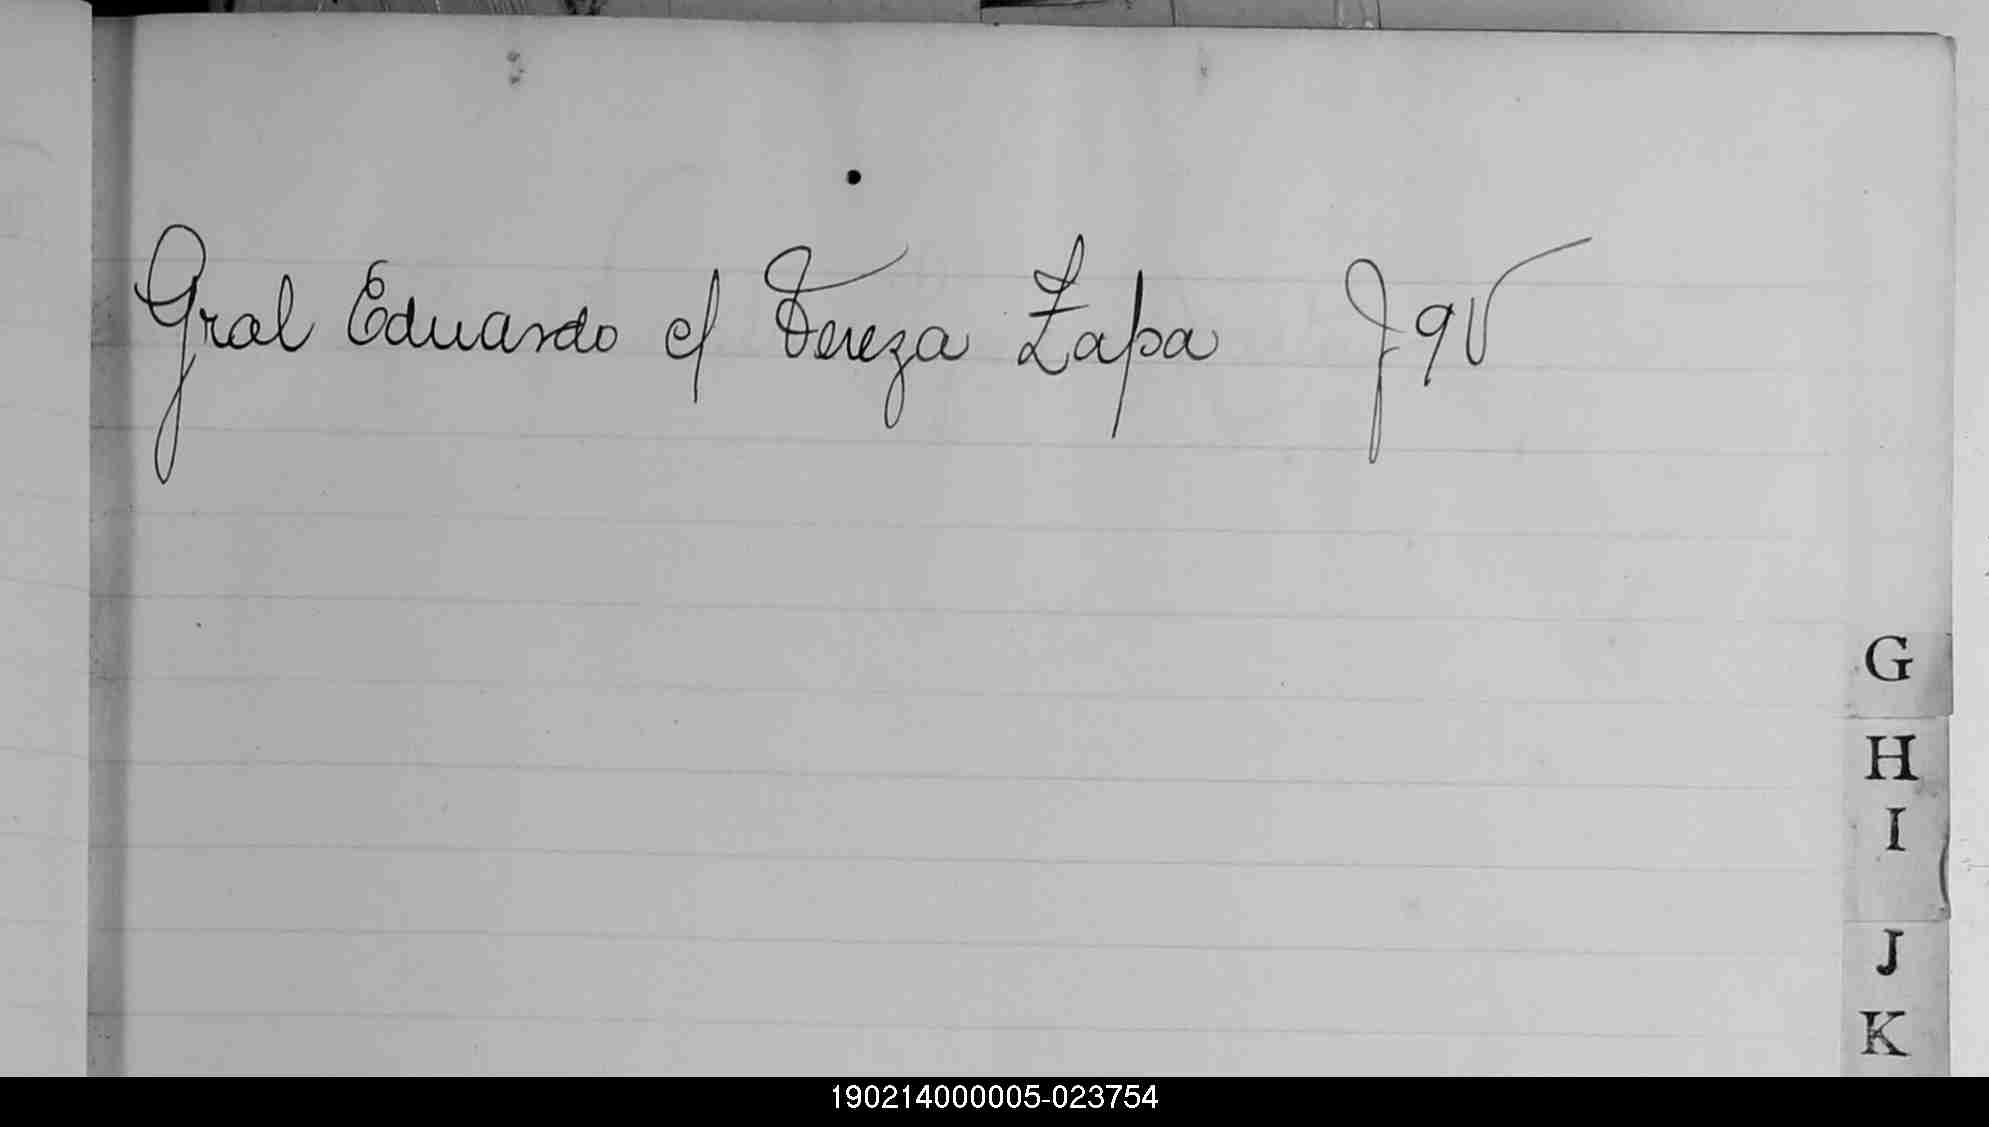 Gral Eduardo c/ Tereza Zapa f 9v
G
H
I
J
K
190214000005-023754